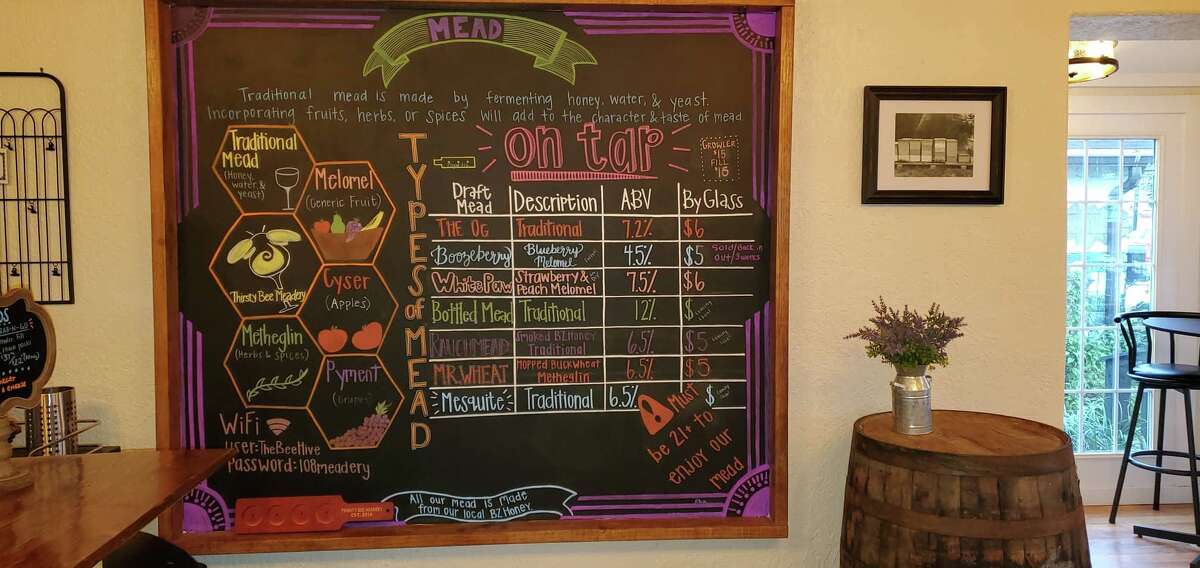 MEAD
Traditional mead is made by fermenting honey, water, & yeast.
Incorporating fruits, herbs, or spices will add to the character & taste of mead
Traditional
Mead
(Honey,
water, &
yeast)
Melomel
(Generic Fruit)
Thirsty Bee Meadery
Cyser
(Apples)
Metheglin
(Herbs & Spices)
Pyment
(Grapes)
TYPES of MEAD
on tap
GROWLER
$15
FILL
$15
Draft Mead Description ABV By Glass
THE OG Traditional 7.2% $6
Boozeberry Blueberry Melomel 4.5% $5 Sold out/Back in 3 weeks
White Paw Strawberry & Peach Melomel 7.5% $6
Bottled Mead Traditional 12% $
RAUCHMEAD Smoked BZ Honey Traditional 6.5% $5
MR. WHEAT Hopped Buckwheat Metheglin 6.5% $5
Mesquite Traditional 6.5% $
Must
be 21+ to
enjoy our
mead
WiFi
user: TheBeeHive
Password: 108meadery
All our mead is made
from our local BZ Honey.
THIRSTY BEE MEADERY